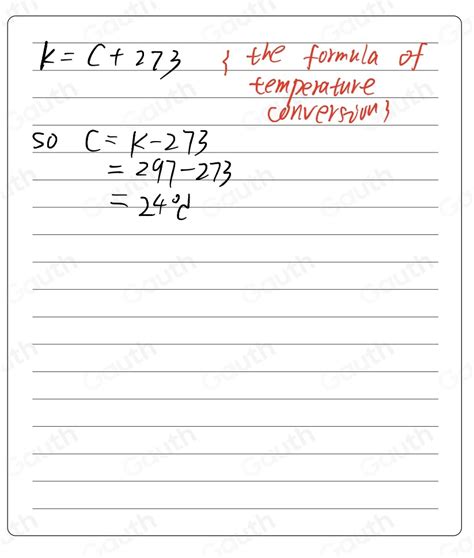 K = C + 273 { the formula of
temperature
conversion}
so C = K - 273
= 297 - 273
= 24°d
Gauth